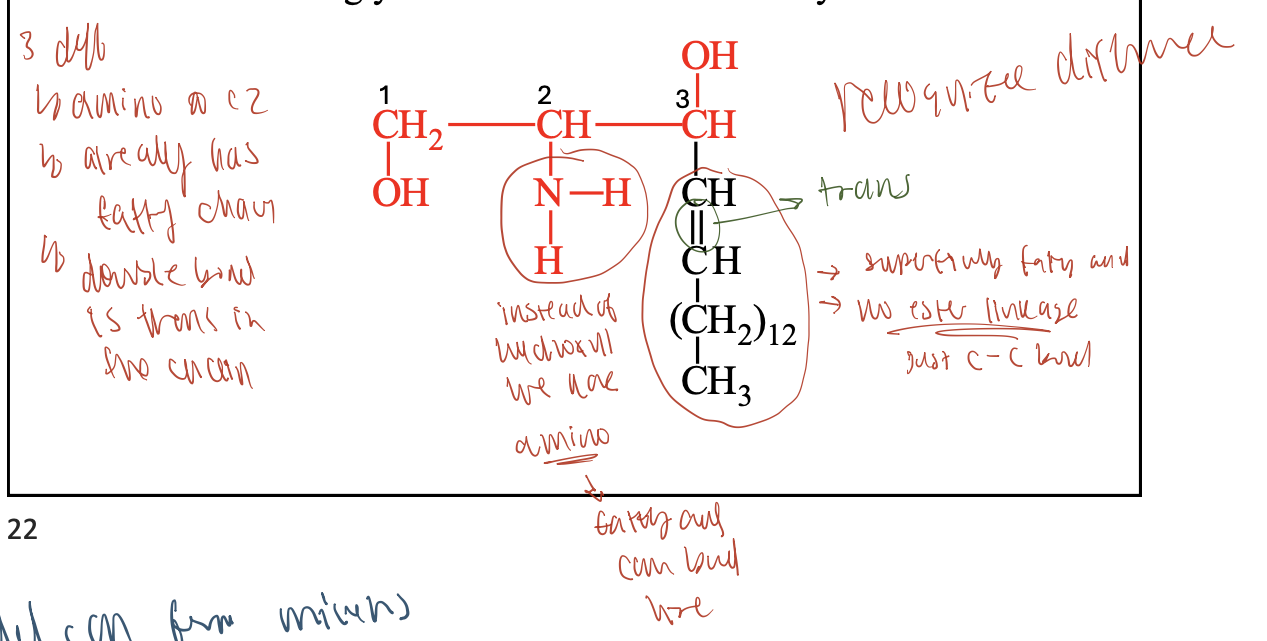 3 diff
↳ amino @ C2
↳ already has
fatty chain
↳ double bond
is trans in
the chain
OH
1 2 3
CH₂—CH—CH
OH N—H CH
H CH
(CH₂)₁₂
CH₃
recognize
trans
→ fatty
→ no ester linkage
just C-C bond
instead of
hydroxyll
we have
amino
fatty
can bind
here
22
can form